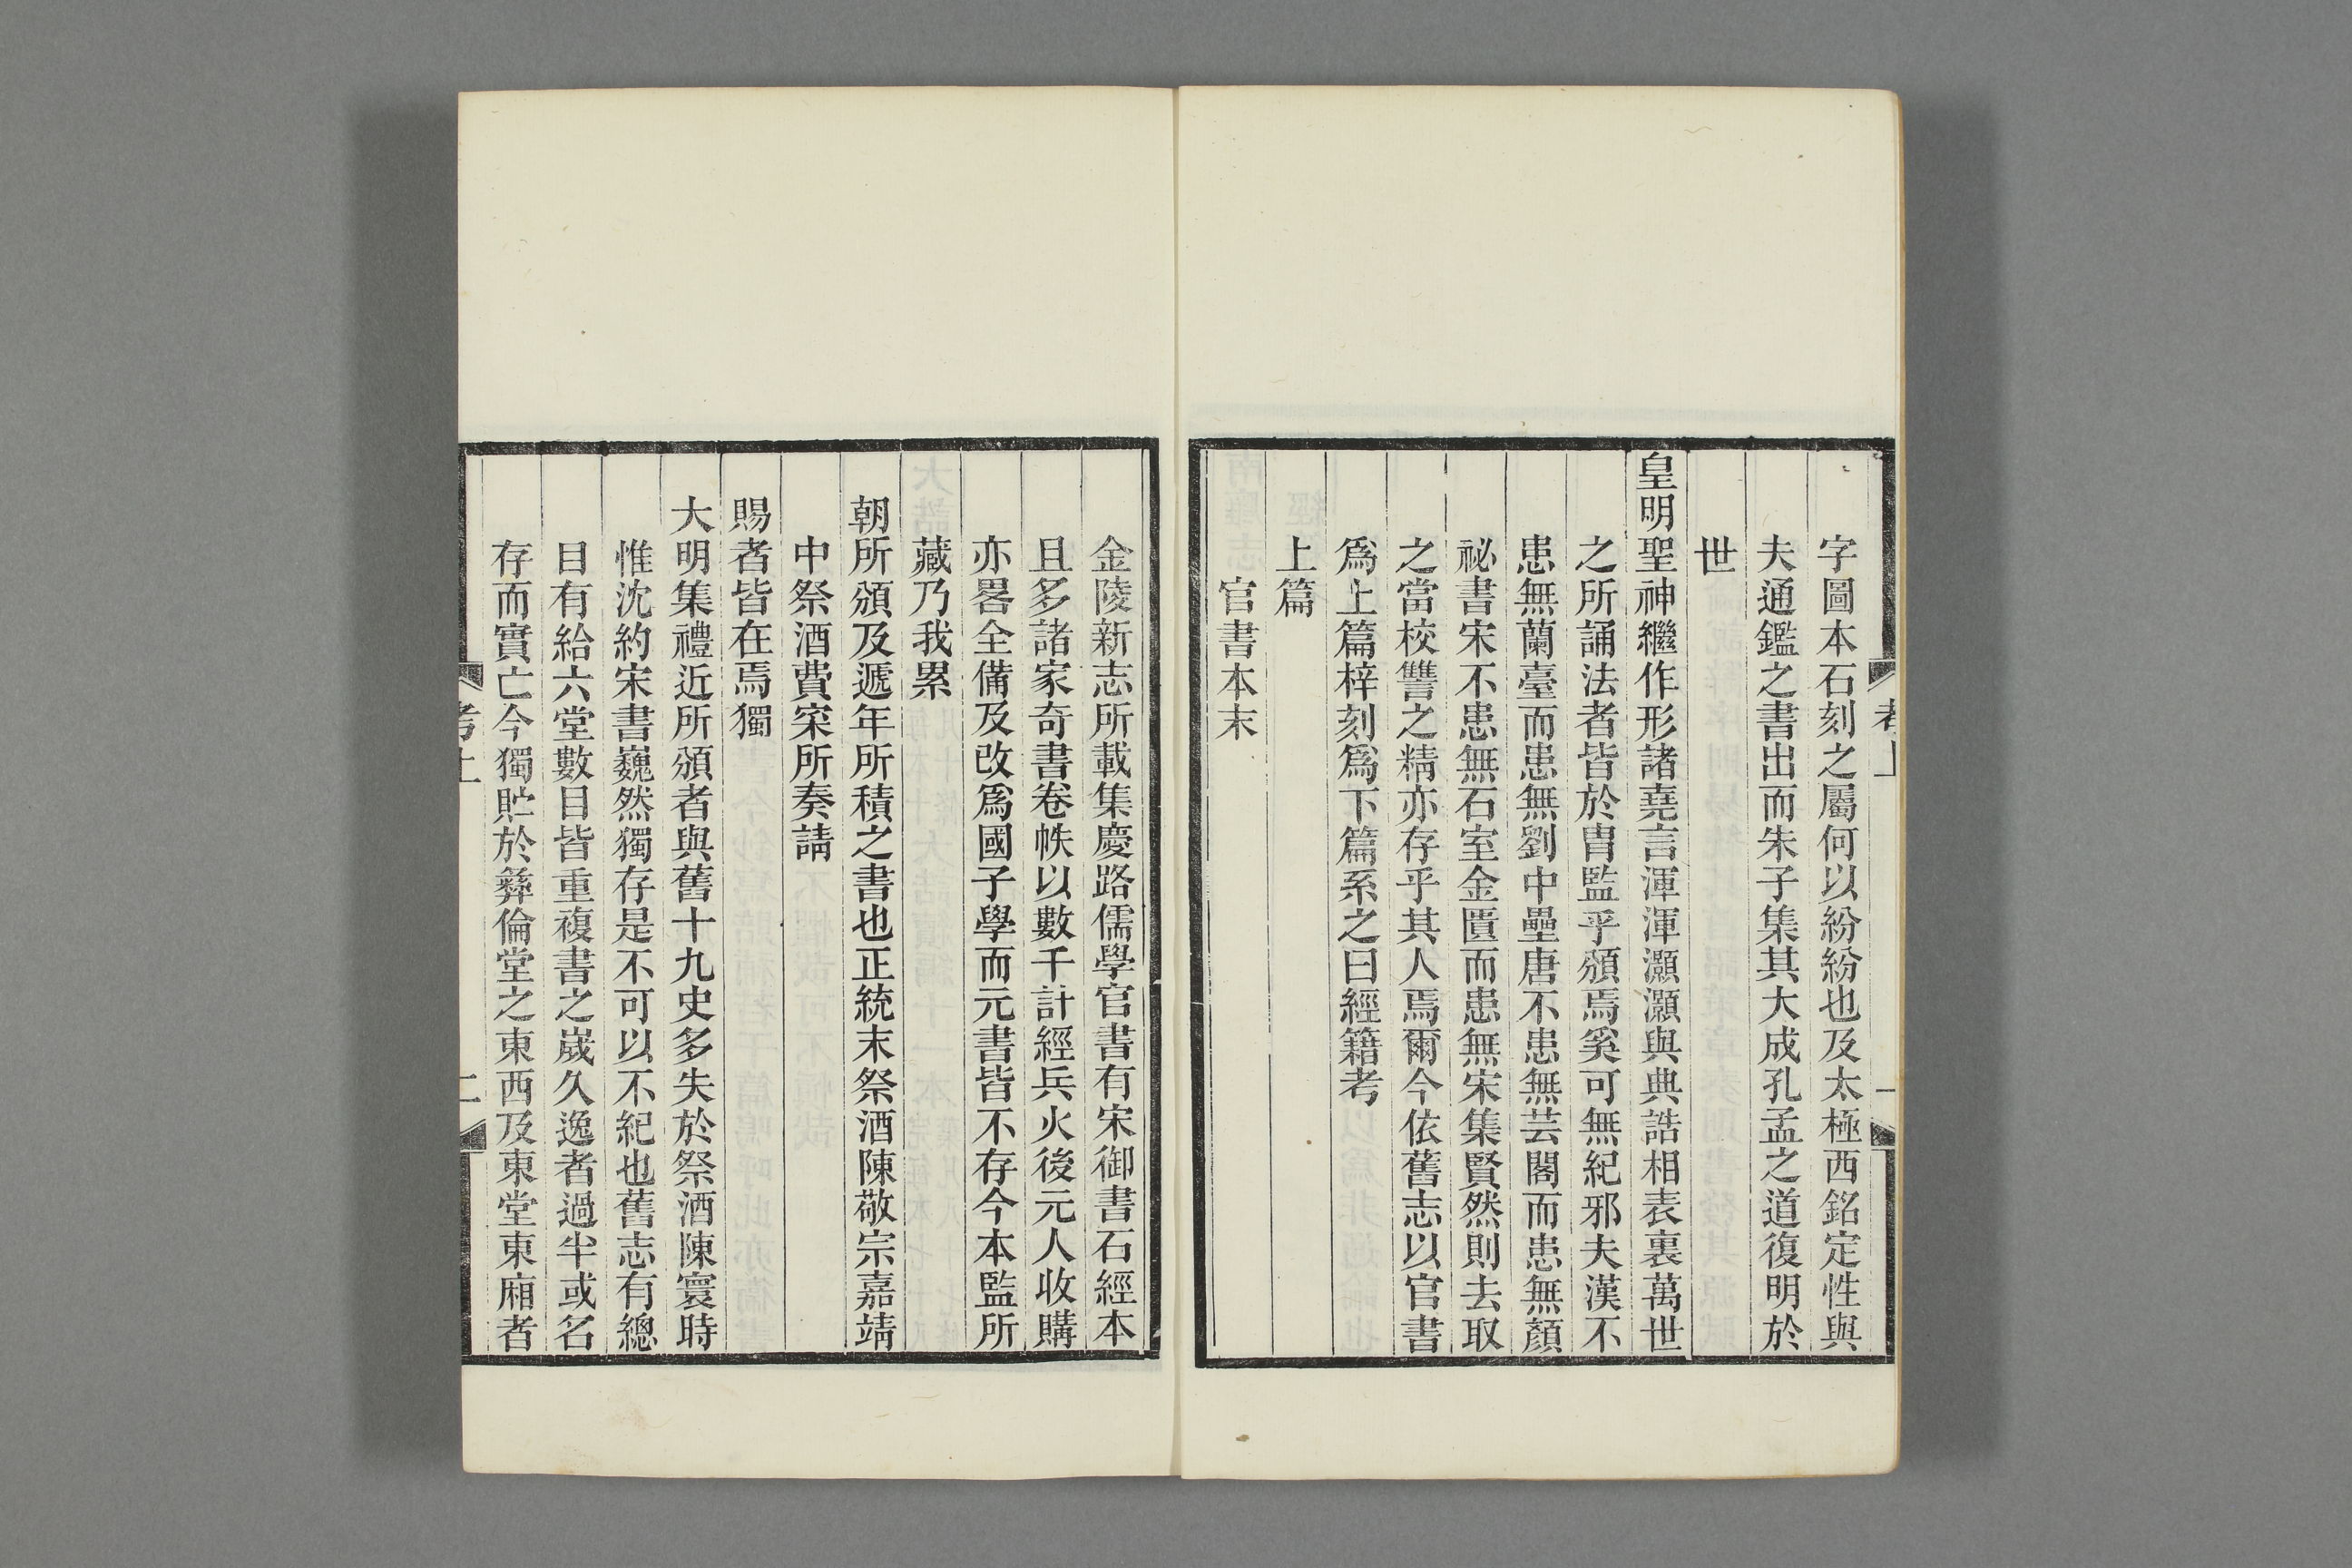 字圖本石刻之屬何以紛紛也及太極西銘定性與
夫通鑑之書出而朱子集其大成孔孟之道復明於
世
皇明聖神繼作形諸堯言渾渾灝灝與典誥相表裏萬世
之所誦法者皆於胄監乎頒焉奚可無紀邪夫漢不
患無蘭臺而患無劉中壘唐不患無芸閣而患無顏
祕書宋不患無石室金匱而患無宋集賢然則去取
之當校讐之精亦存乎其人焉爾今依舊志以官書
爲上篇梓刻爲下篇系之曰經籍考
上篇
官書本末
金陵新志所載集慶路儒學官書有宋御書石經本
且多諸家奇書卷帙以數千計經兵火後元人收購
亦畧全備及改爲國子學而元書皆不存今本監所
藏乃我累
朝所頒及遞年所積之書也正統末祭酒陳敬宗嘉靖
中祭酒費寀所奏請
賜者皆在焉獨
大明集禮近所頒者與舊十九史多失於祭酒陳寰時
惟沈約宋書巍然獨存是不可以不紀也舊志有總
目有給六堂數目皆重複書之歲久逸者過半或名
存而實亡今獨貯於彝倫堂之東西及東堂東廂者
考上
二